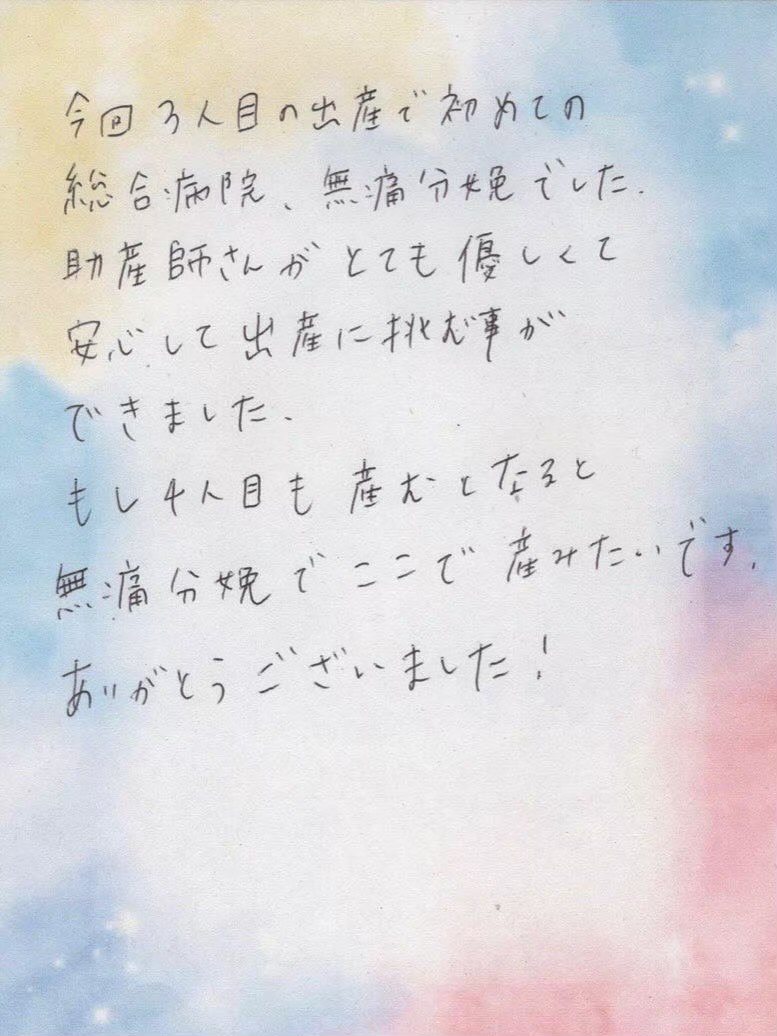 今回3人目の出産で初めての
総合病院、無痛分娩でした.
助産師さんがとても優しくて
安心して出産に挑む事が
できました.
もし4人目も産むとなると
無痛分娩でここで産みたいです.
ありがとうございました!